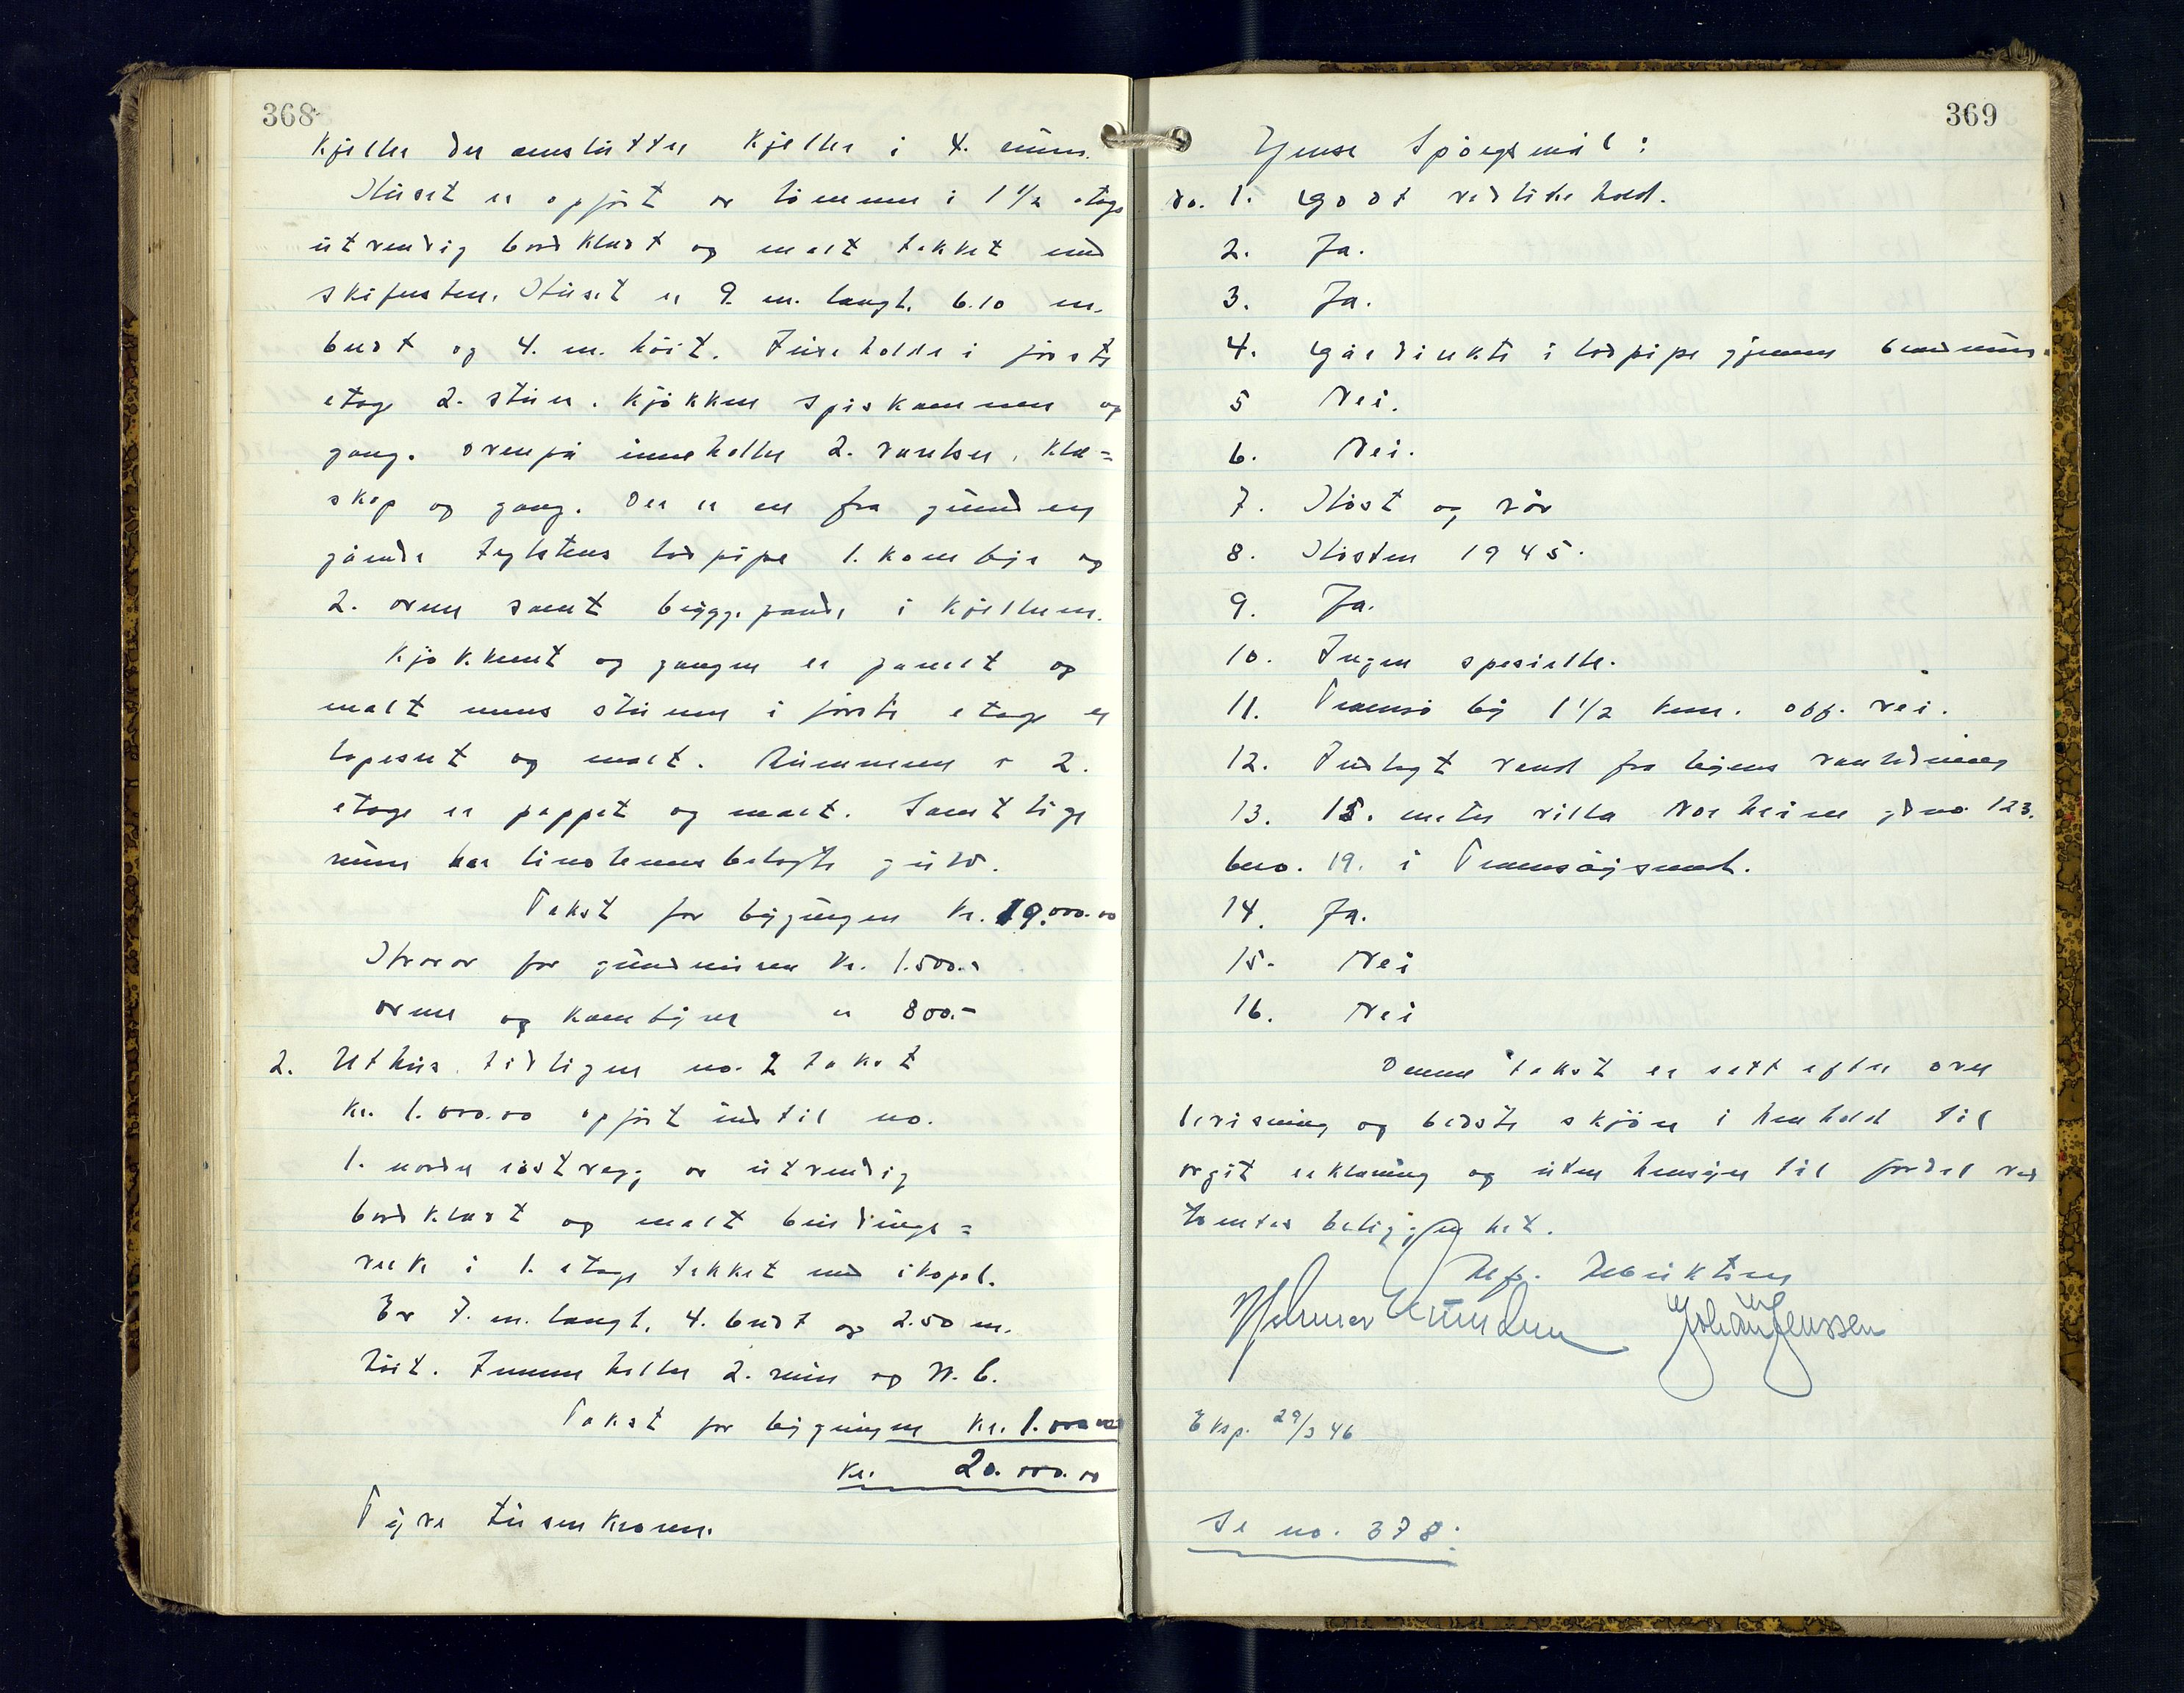 368
Kjeller der omslutter Kjeller i 4. rum.
Huset er opført av tømmer i 1 1/2 etage
utvendig bordklædt og malt tekket med
skifersten. Huset er 9. m. langt. 6.10 m.
bredt og 4. m. høit. Inneholder i første
etage 2. stuer. Kjøkken spiskammer og
gang. ovenpå inneholder 2. værelser. Klæ=
skap og gang. Der er en fra grunden
gående teglstens lodpipe 1. komfyr og
2. ovner samt bryggepande i Kjelleren.
Kjøkkenet og gangen er panelt og
malt mens stuene i første etage er
tapesert og malt. Rummene i 2.
etage er pappet og malt. Samtlige
rum har linoleumsbelagte gulv.
Takst for bygningen Kr. 19.000.00
Hvorav for grundmuren Kr. 1.500.-
ovner og Komfyrer " 800.-
2. Uthus. tidligere no. 2 takst
Kr. 1.000.00 opført indtil no.
1. nordre røstvegg av utvendig
bordklædt og malt bindings=
verk i 1. etage tekket med ikopal.
Er 7. m. langt. 4. bredt og 2.50 m.
høit. Inneholder 2. rum og W.C.
Takst for bygningen Kr. 1.000.00
Kr. 20.000.00
Tyve tusen Kroner.
369
Jenses Spørgsmål:
Do. 1. Godt vedlikehold.
2. Ja.
3. Ja.
4. Går direkte i lodpipe gjennem brandmur.
5 Nei.
6. Nei.
7. Høst og vår
8. Høsten 1945.
9. Ja.
10. Ingen spesielle.
11. Tromsø by 1 1/2 km. off. vei.
12. Indlagt vand fra byens vanledning
13. 15. meter villa Norheim gdno 123.
bno. 19. i Tromsøysund.
14. Ja.
15. Nei
16. Nei
Denne takst er satt efter over
bevisning og bedste skjøn i henhold til
avgit erklæring og uten hensyn til fordel ved
tomtes beliggenhet.
Alf. Albriktsen
Hjelmer Knudsen Johan Jenssen
Eksp. 29/3 46
Se no. 378: